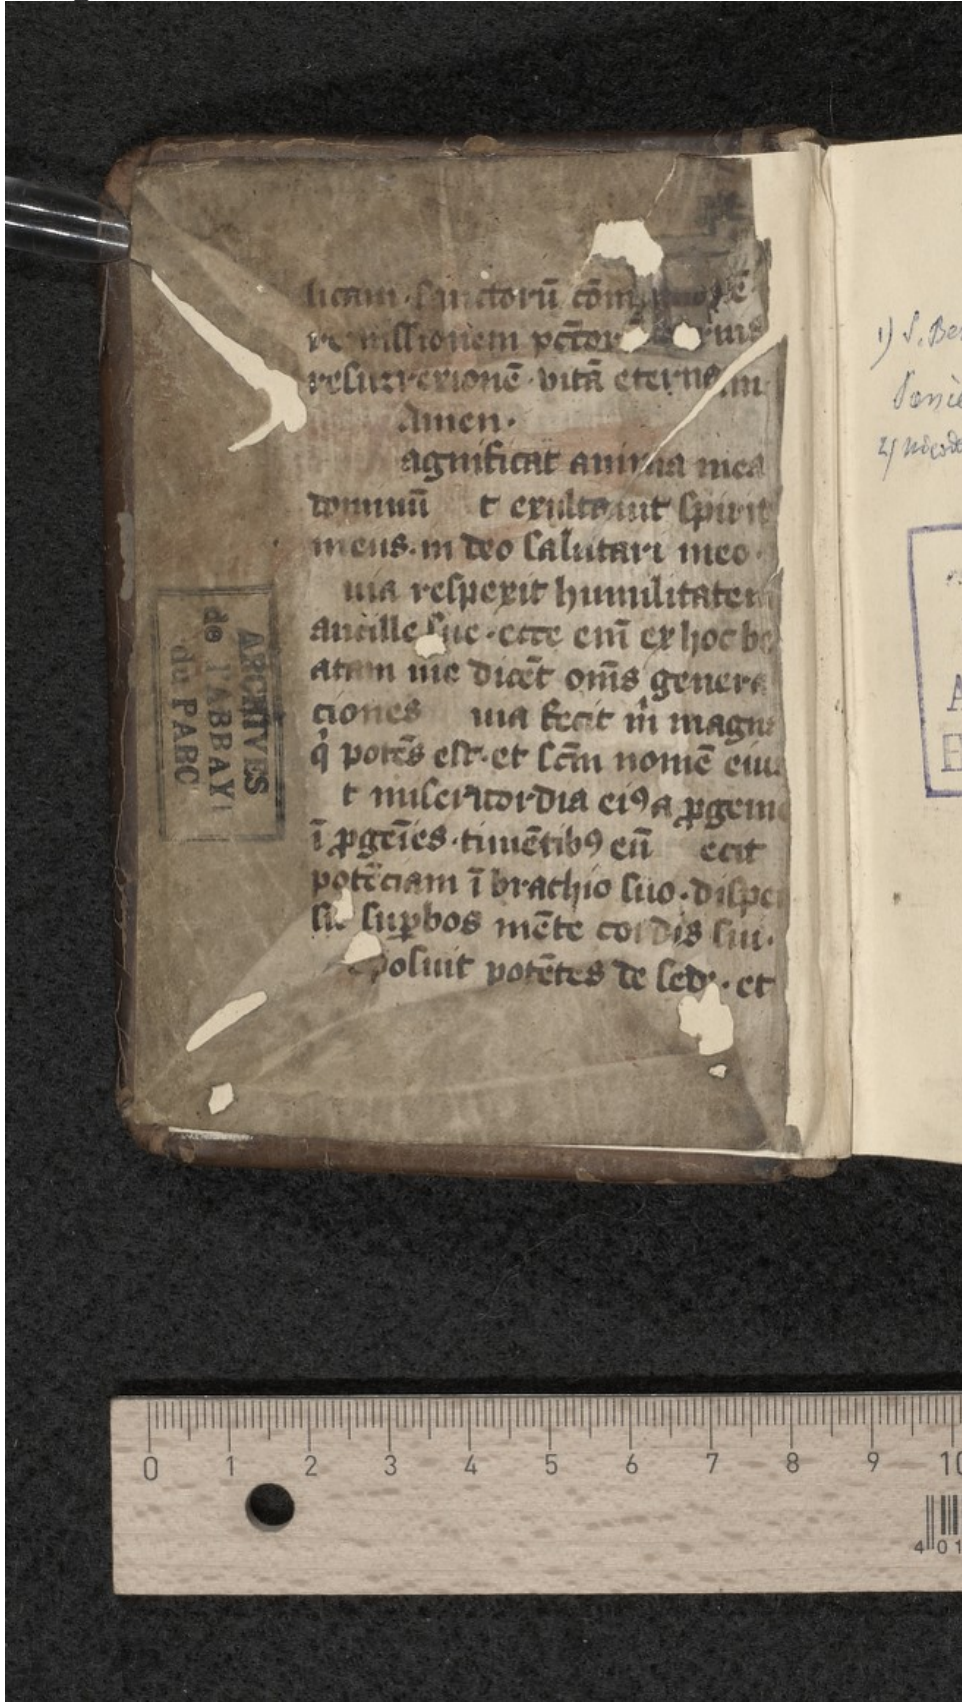 licam · sanctorū cōm
remissionem pctor rnis
resurrexionē · vitā eternam
Amen ·
agnificat anima mea
dominū t exultauit spirit
meus · in deo salutari meo ·
uia respexit humilitatem
ancille sue · ecce eni̅ ex hoc be
atam me dicēt om̄s genera
ciones uia fecit m̍ magna
q̍ potēs est · et sc̄m nomē eius
t misericordia eiꝰ a ꝓgenie
ī ꝓgeīes · timētibꝰ eū ecit
potēciam ī brachio suo · disper
sit suꝑbos mēte cordis sui ·
eposuit potētes de sede · et
ARCHIVES
de l'ABBAY
de PARC
1) S. Ber
2)
A
0 1 2 3 4 5 6 7 8 9 10
4 01